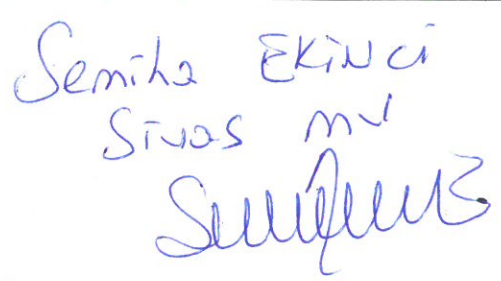 Semiha EKİNCİ
Sivas mv